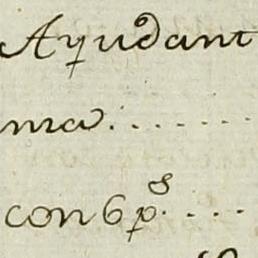 Ayudant
ma........
con 6 p.s....